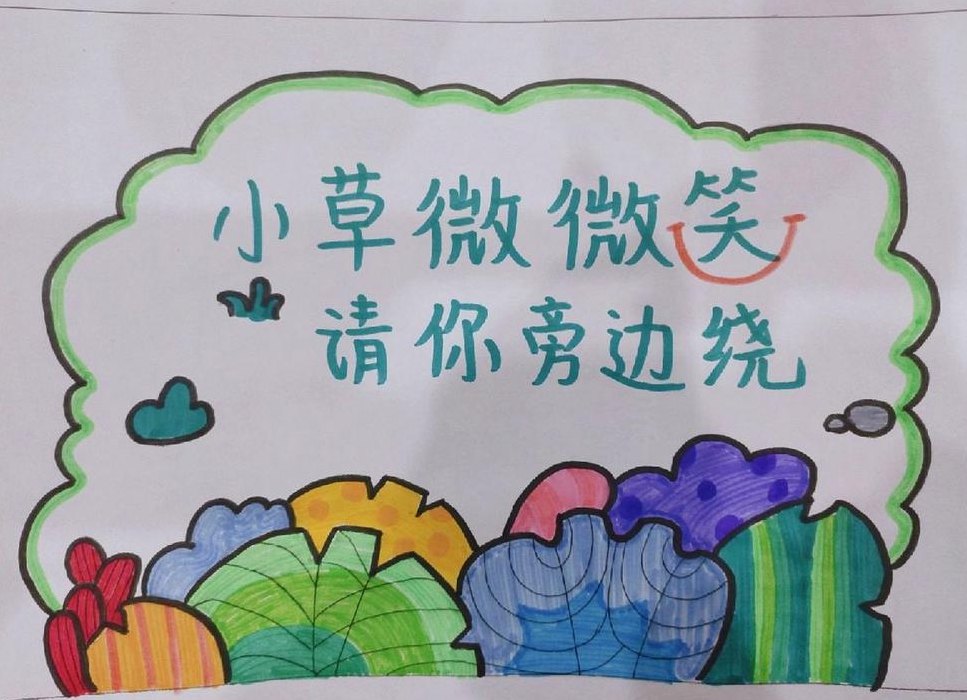 小草微微笑
请你旁边绕